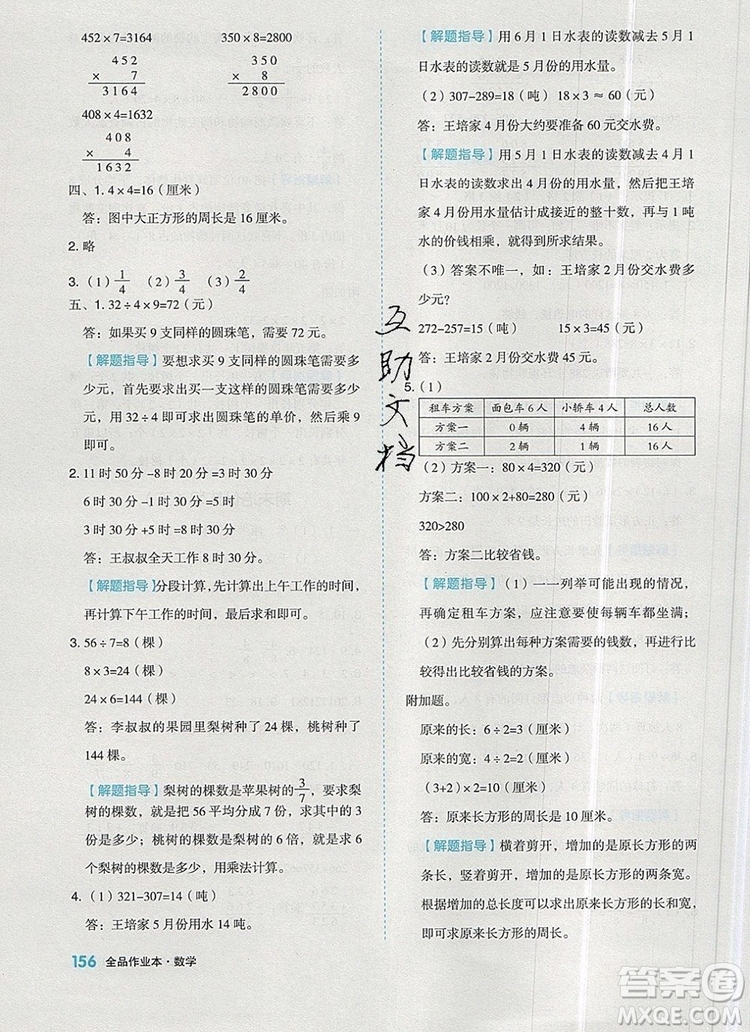 452×7=3164　350×8=2800
4 5 2　3 5 0
×　7　×　8
3 1 6 4　2 8 0 0
408×4=1632
4 0 8
×　4
1 6 3 2
四、1. 4×4=16（厘米）
答：图中大正方形的周长是 16 厘米。
2. 略
3.（1）1/4（2）3/4（3）2/4
五、1. 32÷4×9=72（元）
答：如果买 9 支同样的圆珠笔，需要 72 元。
【解题指导】要想求买 9 支同样的圆珠笔需要多
少元，首先要求出买 1 支同样的圆珠笔需要多少
元，用 32÷4 即可求出圆珠笔的单价，然后乘 9
即可。
2. 11 时 50 分-8 时 20 分=3 时 30 分
6 时 30 分-1 时 30 分=5 时
3 时 30 分+5 时=8 时 30 分
答：王叔叔全天工作了 8 时 30 分。
【解题指导】分段计算，先计算出上午工作的时间，
再计算下午工作的时间，最后求出总和即可。
3. 56÷7=8（棵）
8×3=24（棵）
24×6=144（棵）
答：李叔叔的果园里梨树种了 24 棵，桃树种了
144 棵。
【解题指导】梨树的棵数是苹果树的3/7，要求梨
树的棵数，就是把 56 平均分成 7 份，求其中的 3
份是多少；桃树的棵数是梨树的 6 倍，就是求 6 个
梨树的棵数是多少，用乘法计算。
4.（1）321-307=14（吨）
答：王培家 5 月份用水 14 吨。
156 全品作业本·数学
【解题指导】用 6 月 1 日水表的读数减去 5 月 1
日水表的读数就是 5 月份的用水量。
（2）307-289=18（吨）　18×3≈60（元）
答：王培家 4 月份大约要准备 60 元交水费。
【解题指导】用 5 月 1 日水表的读数减去 4 月 1
日水表的读数求出 4 月份的用水量，然后把王培
家 4 月份用水量估计成接近的整十数，再与 1 吨
水的价钱相乘，就得到所求结果。
（3）答案不唯一，如：王培家 2 月份交水费多
少元？
272-257=15（吨）　15×3=45（元）
答：王培家 2 月份交水费 45 元。
5.（1）
租车方案　面包车 6 人　小轿车 4 人　总人数
方案一　0 辆　4 辆　16 人
方案二　2 辆　1 辆　16 人
（2）方案一：80×4=320（元）
方案二：100×2+80=280（元）
320>280
答：方案二比较省钱。
【解题指导】（1）一一列举可能出现的情况，
再确定租车方案，应尽量使每辆车都坐满。
（2）先分别算出每种方案需要的钱数，再比较
得出比较省钱的方案。
附加题。
原来的长：6÷2=3（厘米）
原来的宽：4÷2=2（厘米）
（3+2）×2=10（厘米）
答：原来长方形的周长是 10 厘米。
【解题指导】横着剪开，增加的是原来长方形的
两条长；竖着剪开，增加的是原来长方形的两条宽。
根据增加的厘米数可以求出原来长方形的长和宽，
进而求出原来长方形的周长。
互助文档
答案圈
MXQE.COM